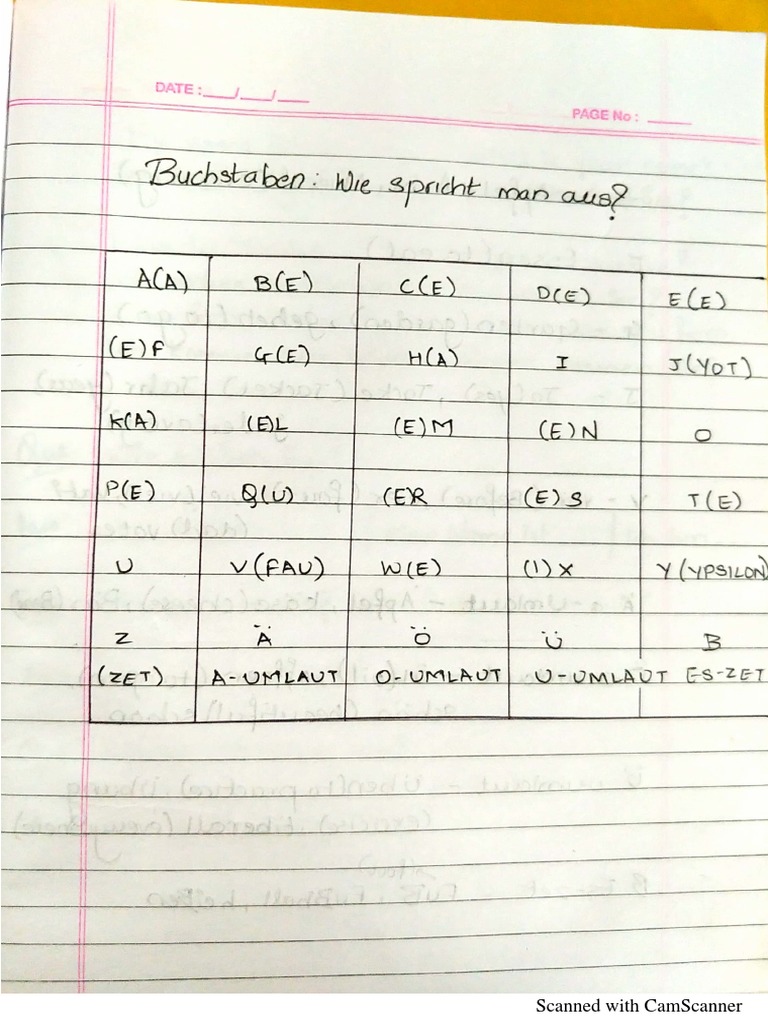 DATE :___/___/___
PAGE No : _____
Buchstaben: Wie spricht man aus?
A(A) B(E) C(E) D(E) E(E)
(E)F G(E) H(A) I J(YOT)
K(A) (E)L (E)M (E)N O
P(E) Q(U) (E)R (E)S T(E)
U V(FAU) W(E) (I)X Y(YPSILON)
Z Ä Ö Ü B
(ZET) A-UMLAUT O-UMLAUT U-UMLAUT ES-ZET
Scanned with CamScanner